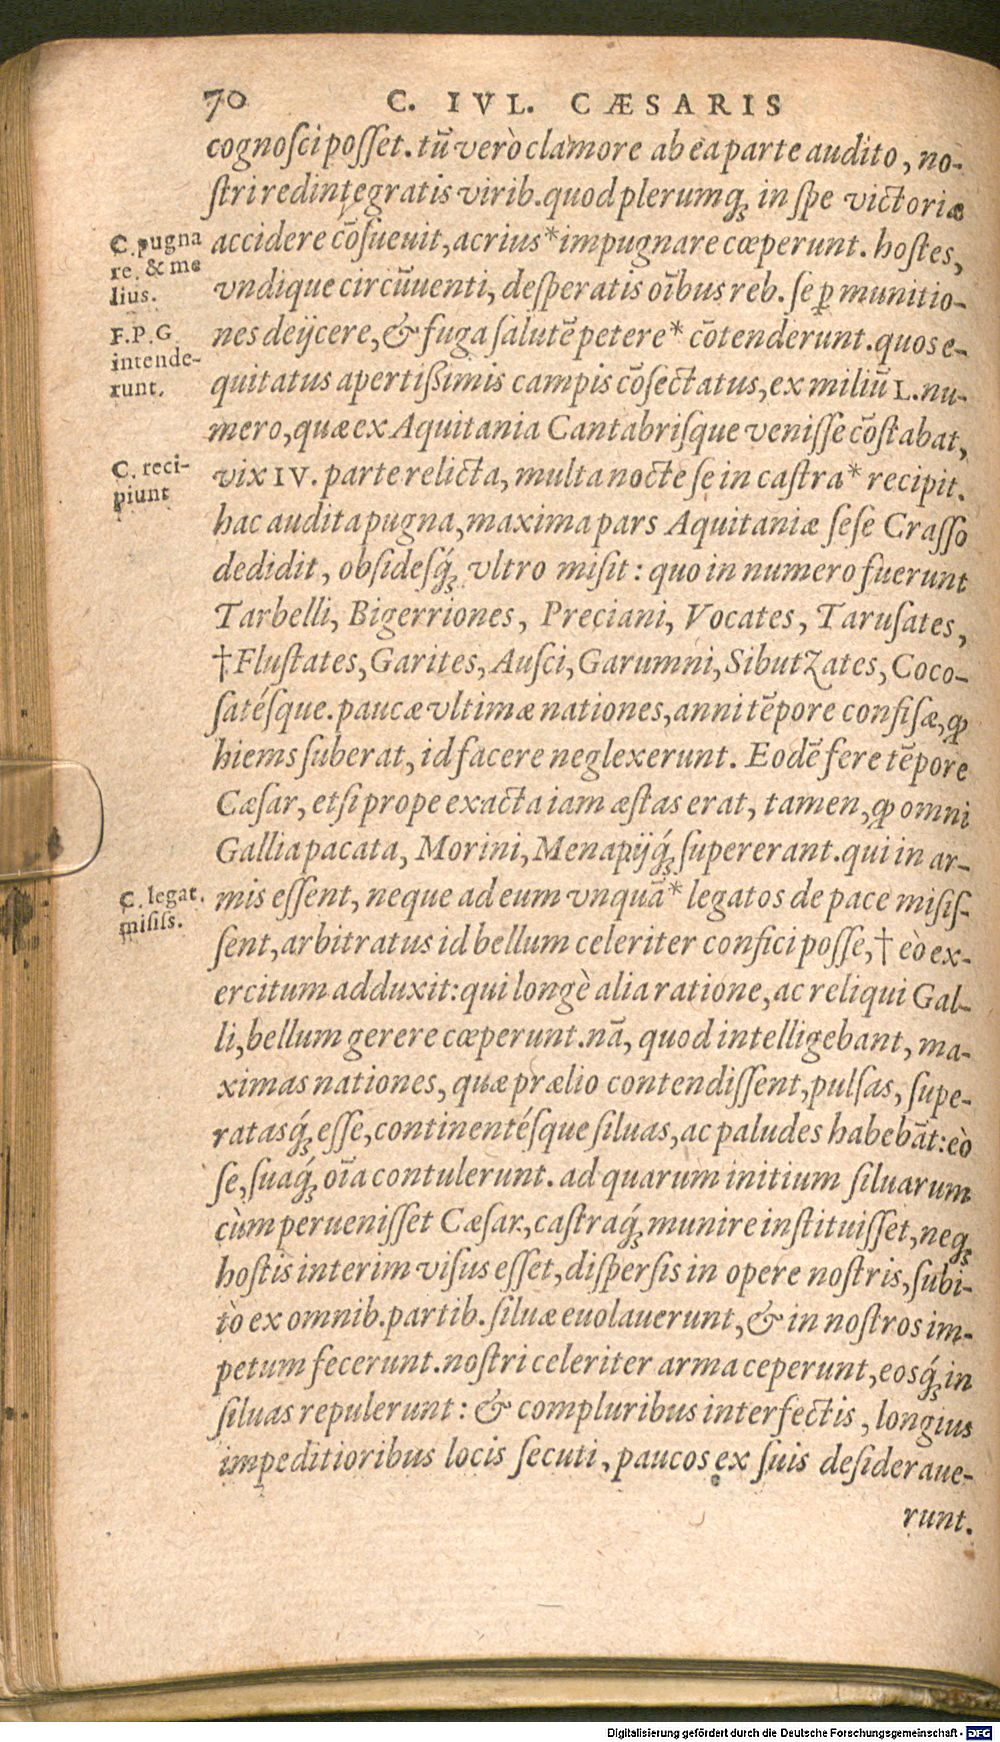 70 C. IVL. CÆSARIS
cognoſci poſſet. tū verò clamore ab ea parte audito, no-
ſtri redintegratis virib. quod plerumq; in ſpe victoriæ
accidere cōſueuit, acrius* impugnare cœperunt. hoſtes,
vndique circūuenti, deſperatis oībus reb. ſe ꝑ munitio-
nes deijcere, & fuga ſalutē petere* cōtenderunt. quos e-
quitatus apertißimis campis cōſectatus, ex miliū L. nu-
mero, quæ ex Aquitania Cantabriſque veniſſe cōſtabat,
vix IV. parte relicta, multa nocte ſe in caſtra* recipit.
hac audita pugna, maxima pars Aquitaniæ ſeſe Craſſo
dedidit, obſidesq́; vltro miſit: quo in numero fuerunt
Tarbelli, Bigerriones, Preciani, Vocates, Taruſates,
†Fluſtates, Garites, Auſci, Garumni, Sibutzates, Coco-
ſatésque. paucæ vltimæ nationes, anni tēpore confiſæ, ꝙ
hiems ſuberat, id facere neglexerunt. Eodē fere tēpore
Cæſar, etſi prope exacta iam æſtas erat, tamen, ꝙ omni
Gallia pacata, Morini, Menapijq́; ſupererant. qui in ar-
mis eſſent, neque ad eum vnquā* legatos de pace miſiſ-
ſent, arbitratus id bellum celeriter confici poſſe, † eò ex-
ercitum adduxit: qui longè alia ratione, ac reliqui Gal-
li, bellum gerere cœperunt. nā, quod intelligebant, ma-
ximas nationes, quæ prælio contendiſſent, pulſas, ſupe-
ratasq́; eſſe, continentéſque ſiluas, ac paludes habebāt: eò
ſe, ſuaq́; oīa contulerunt. ad quarum initium ſiluarum
cùm perueniſſet Cæſar, caſtraq́; munire inſtituiſſet, neq;
hoſtis interim viſus eſſet, diſperſis in opere noſtris, ſubi-
tò ex omnib. partib. ſiluæ euolauerunt, & in noſtros im-
petum fecerunt. noſtri celeriter arma ceperunt, eosq́; in
ſiluas repulerunt: & compluribus interfectis, longius
impeditioribus locis ſecuti, paucos ex ſuis deſideraue-
runt.
C. pugna
re. & me
lius.
F.P.G
intende-
runt.
C. reci-
piunt
C. legat.
miſiſs.
Digitalisierung gefördert durch die Deutsche Forschungsgemeinschaft - DFG